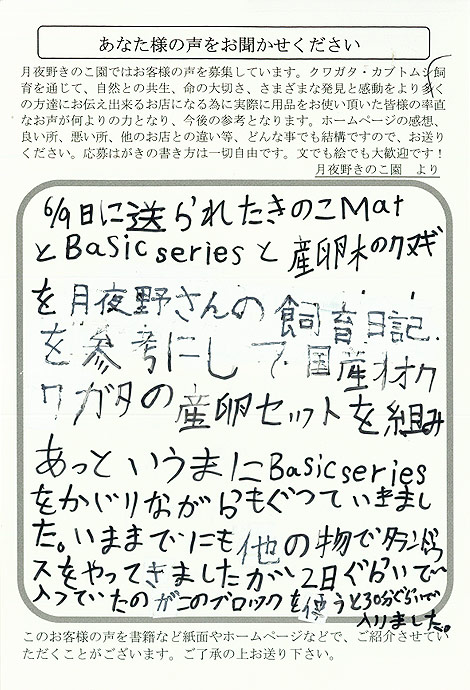 あなた様の声をお聞かせください
月夜野きのこ園ではお客様の声を募集しています。クワガタ・カブトムシ飼
育を通じて、自然との共生、命の大切さ、さまざまな発見と感動をより多く
の方達にお伝え出来るお店になる為に実際に用品をお使い頂いた皆様の率直
なお声が何よりの力となり、今後の参考となります。ホームページの感想、
良い所、悪い所、他のお店との違い等、どんな事でも結構ですので、お送り
ください。応募はがきの書き方は一切自由です。文でも絵でも大歓迎です！
月夜野きのこ園 より
6/9日に送られたきのこMat
とBasicseriesと産卵木のクヌギ
を月夜野さんの飼育日記.
を参考にして国産オオク
ワガタの産卵セットを組み
あっというまにBasicseries
をかじりながらもぐっていきまし
た。いままでにも他の物でタランドゥ
スをやってきましたが2日ぐらいで
入っていたのがこのブロックを使うと30分ぐらいで
入りました。
このお客様の声を書籍など紙面やホームページなどで、ご紹介させてい
ただくことがございます。ご了承の上お送り下さい。